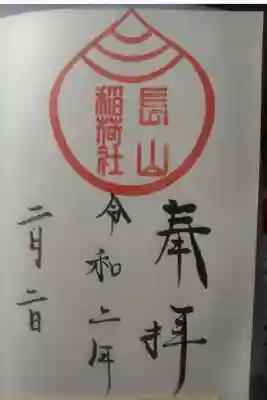 長山
稲荷社
奉拝
令和二年
二月二日